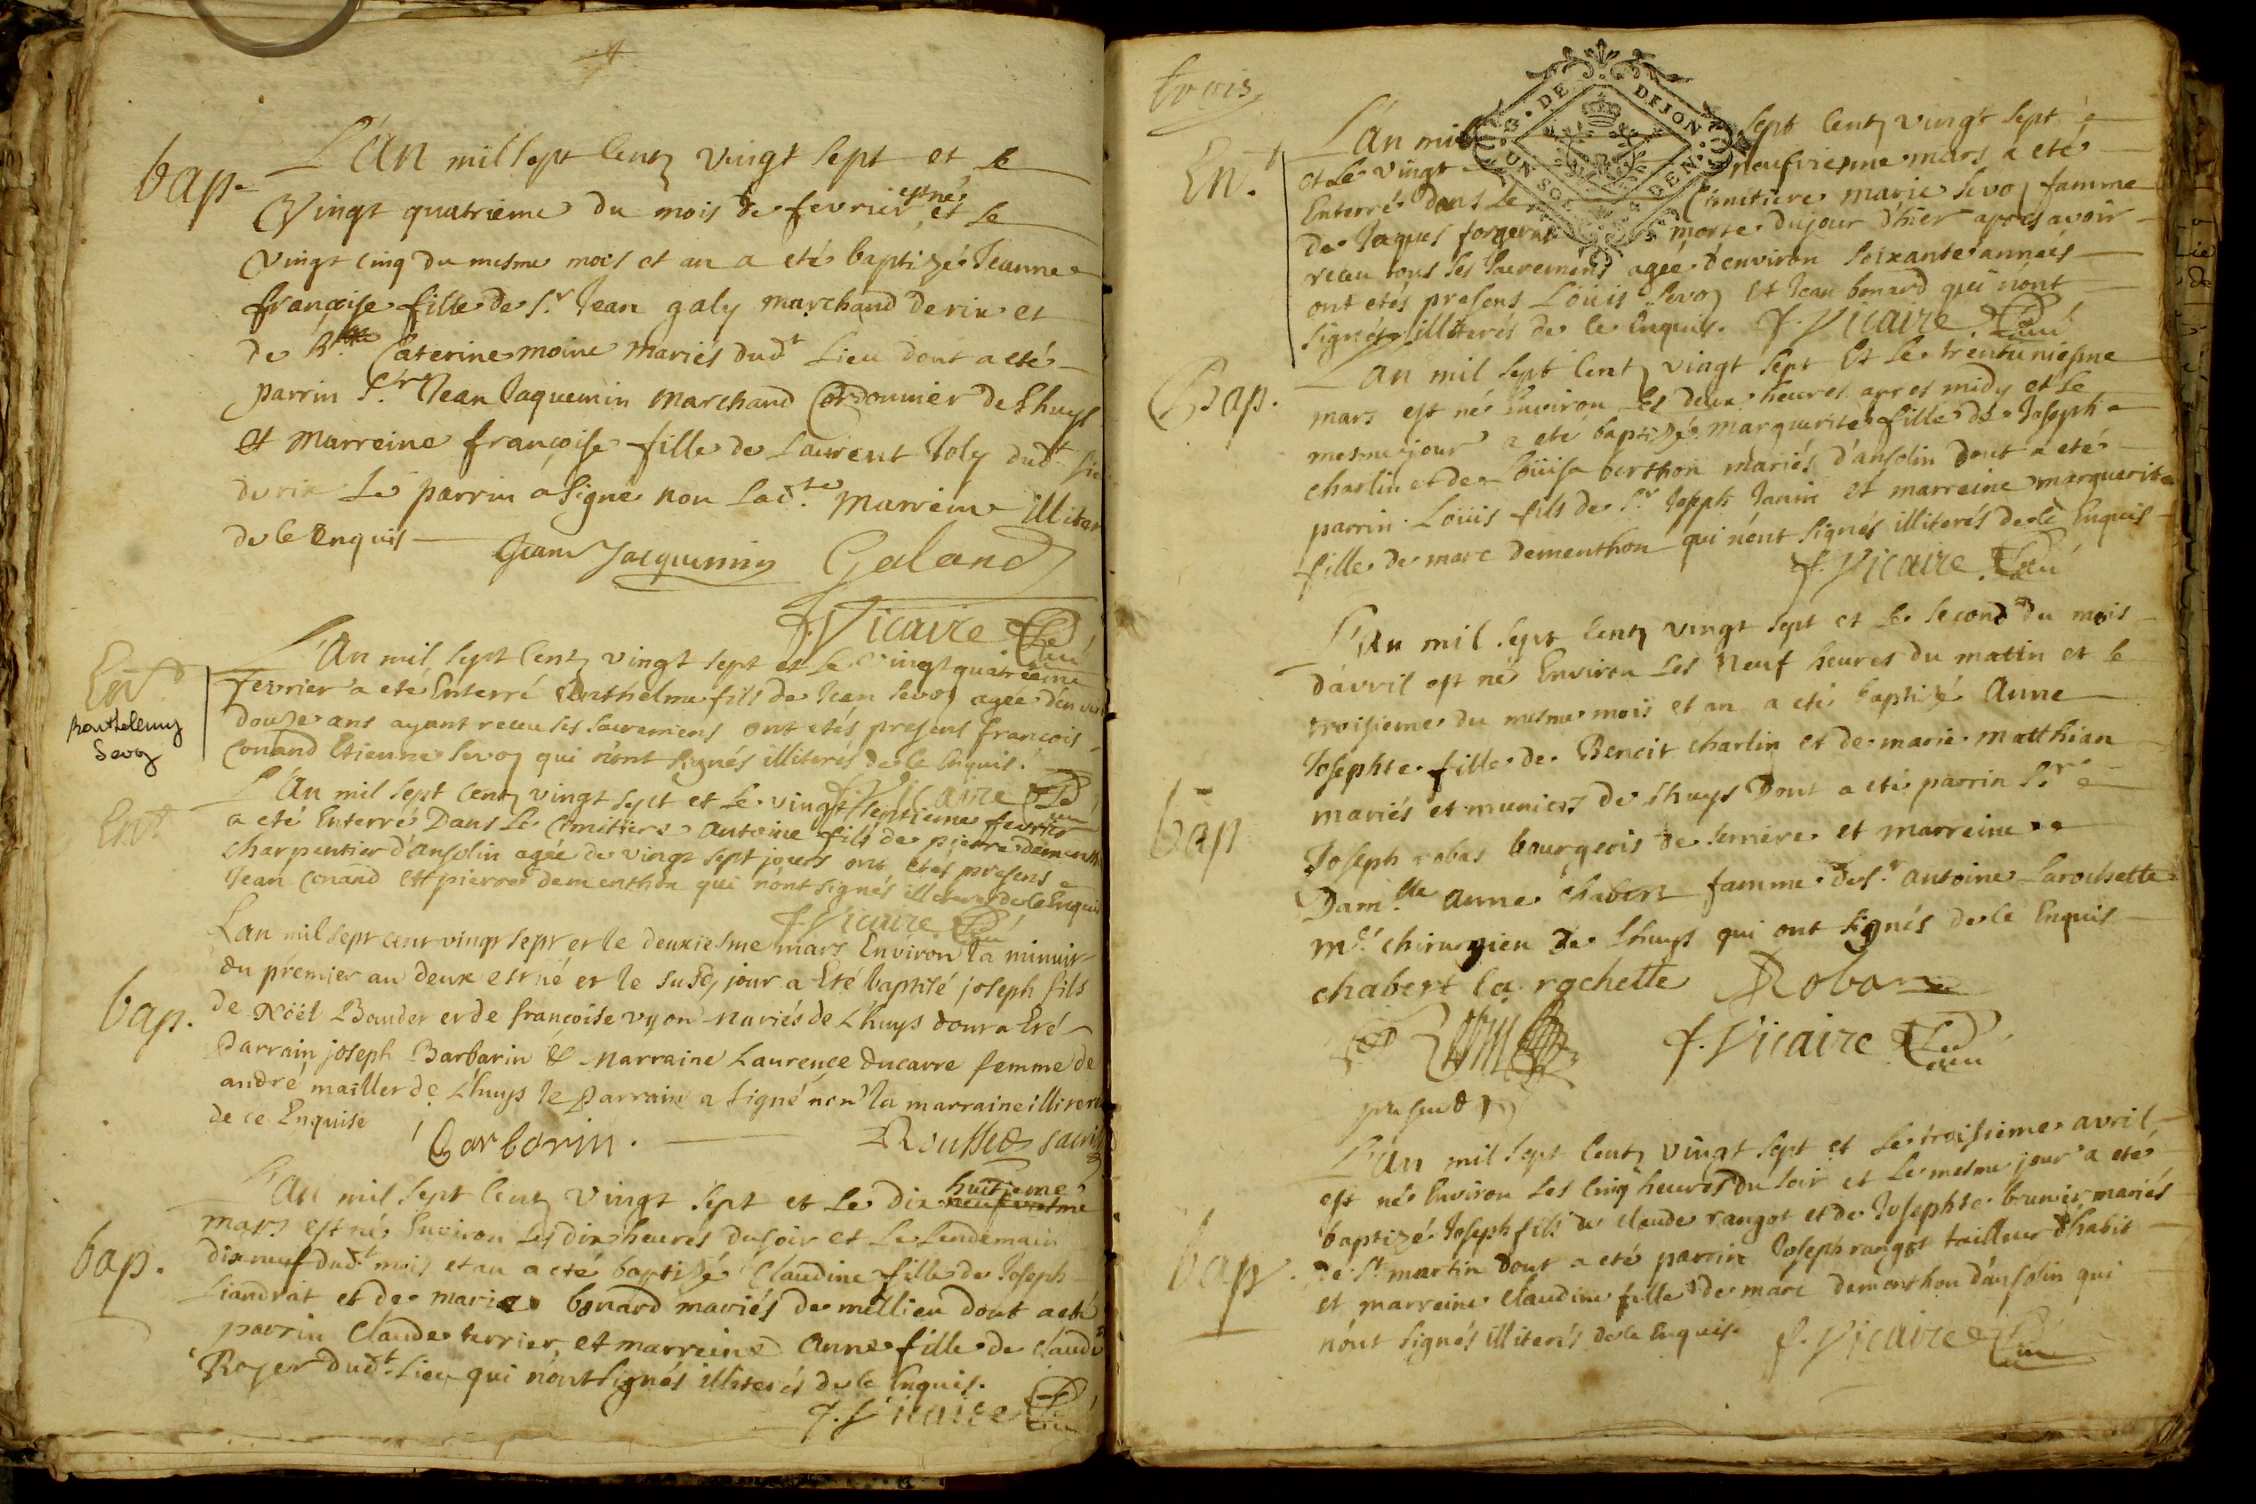 bap. L'an mil sept centz vingt sept et le
vingt quatrieme du mois de fevrier est né et le
vingt cinq du mesme mois et an a eté baptizé Jeanne
françoise fille de Sr. Jean galy marchand derin et
de Caterine moine mariés dudt Lieu dont a eté
parrin Sr. Jean Jaquemin marchand Cordonnier de Lhuys
et marreine françoise fille de Laurent Joly dudt
derin Le parrin a signé non ladte marreine illiter
de ce enquis
Jean Jacquemin Galand
f. Vicaire Curé
Ent. L'an mil sept centz vingt sept et le vingtquatrieme
Barthelemy Sevoz
fevrier a eté Enterré Anthelme fils de Jean Sevoz agée d'en
douze ans ayant receu ses sacremens ont etés presens francois
Conand Etienne Sevoz qui n'ont signés illiterés de ce Enquis.
f. Vicaire Curé
Ent. L'an mil sept centz vingt sept et le vingt septieme fevrier
a eté Enterré Dans le Cimitiere antoine fils de pierre dementh
charpentier d'ansolin agée de vingt sept jours ont etés presens
Jean Conand Et pierre dementhon qui n'ont signés illiterés de ce Enquis
f. Vicaire Curé
bap. L'an mil sept cent vingt sept et le deuxiesme mars Environ la minuit
du premier au deux est né et le susd. jour a Eté baptisé joseph fils
de Noël Bauder et de francoise vyon mariés de L'huys dont a Eté
Parrain joseph Barbarin & Marraine Laurence ducarre femme de
andré mailler de L'huys le Parrain a signé non la marraine illiter
de ce Enquise
Barbarin. Rousset
bap. L'an mil sept centz vingt sept et le dix huitieme neufviesme
mars est né Environ les dix heures du soir et le Lendemain
dix neuf dudt. mois et an a eté baptizé Claudine fille de Joseph
Liandrat et de marie bonard mariés de millieu dont a eté
parrin Claude terrier, et marreine anne fille de claude
Royer dudt. Lieu qui n'ont signés illiterés de ce Enquis.
f. Vicaire Curé
trois
G. DE DIJON
UN SOL
DEN.
En.t L'an mil sept centz vingt sept
et Le vingt neufviesme mars a eté
Enterré dans Le Cimitiere marie Sevoz famme
de Jaques forgeron morte dujour d'hier apres avoir
receu tous ses Sacremens agée d'environ soixante années
ont etés presens Loüis Sevoz et Jean bonard qui n'ont
signés illiterés de ce Enquis. f. Vicaire Curé
Bap. L'an mil sept centz vingt sept Et le trentuniesme
mars est né Environ les deux heures apres midy et le
mesme jour a eté baptizé marguerite fille de Joseph
charlin et de Loüise berthon mariés d'ansolin dont a eté
parrin Loüis fils de Sr Joseph Janin et marreine marguerite
fille de marc dementhon qui n'ont signés illiterés de ce Enquis
f. Vicaire Curé
bap L'an mil sept centz vingt sept et le second du mois
d'avril est né Environ Les neuf heures du matin et le
troisieme du mesme mois et an a eté baptizé Anne
Josephte fille de Benoit charlin et de marie matthian
mariés et muniers de Lhuys Dont a eté parrin Sr
Joseph robas bourgeois de serriere et marreine
Damlle anne chabert famme de Sr. antoine Larochette
me. chirurgien de Lhuys qui ont signés de ce Enquis
chabert la rochette Robas
f. Vicaire Curé
present
bap. L'an mil sept centz vingt sept et le troisieme avril
est né Environ Les cinq heures du soir et Le mesme jour a eté
baptizé Joseph fils de claude rangot et de Josephte brunir mariés
de St. martin dont a eté parrin Joseph rangot tailleur d'habit
et marreine claudine fille de marc dementhon d'ansolin qui
n'ont signés illiterés de ce Enquis. f. Vicaire Curé